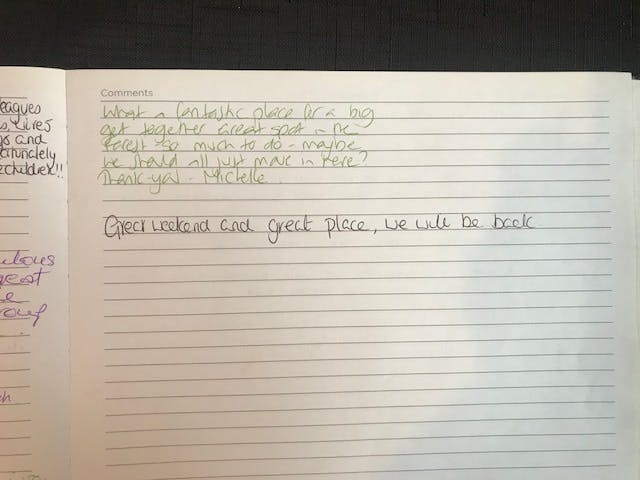 eagues
s, Lives
gs and
ortunately
children!!
Comments
What a fantastic place for a big
get together Great spot in the
forest so much to do - maybe
we should all just move in here?
Thank-you - Michelle
Great weekend and great place, we will be back
ulous
great
oup